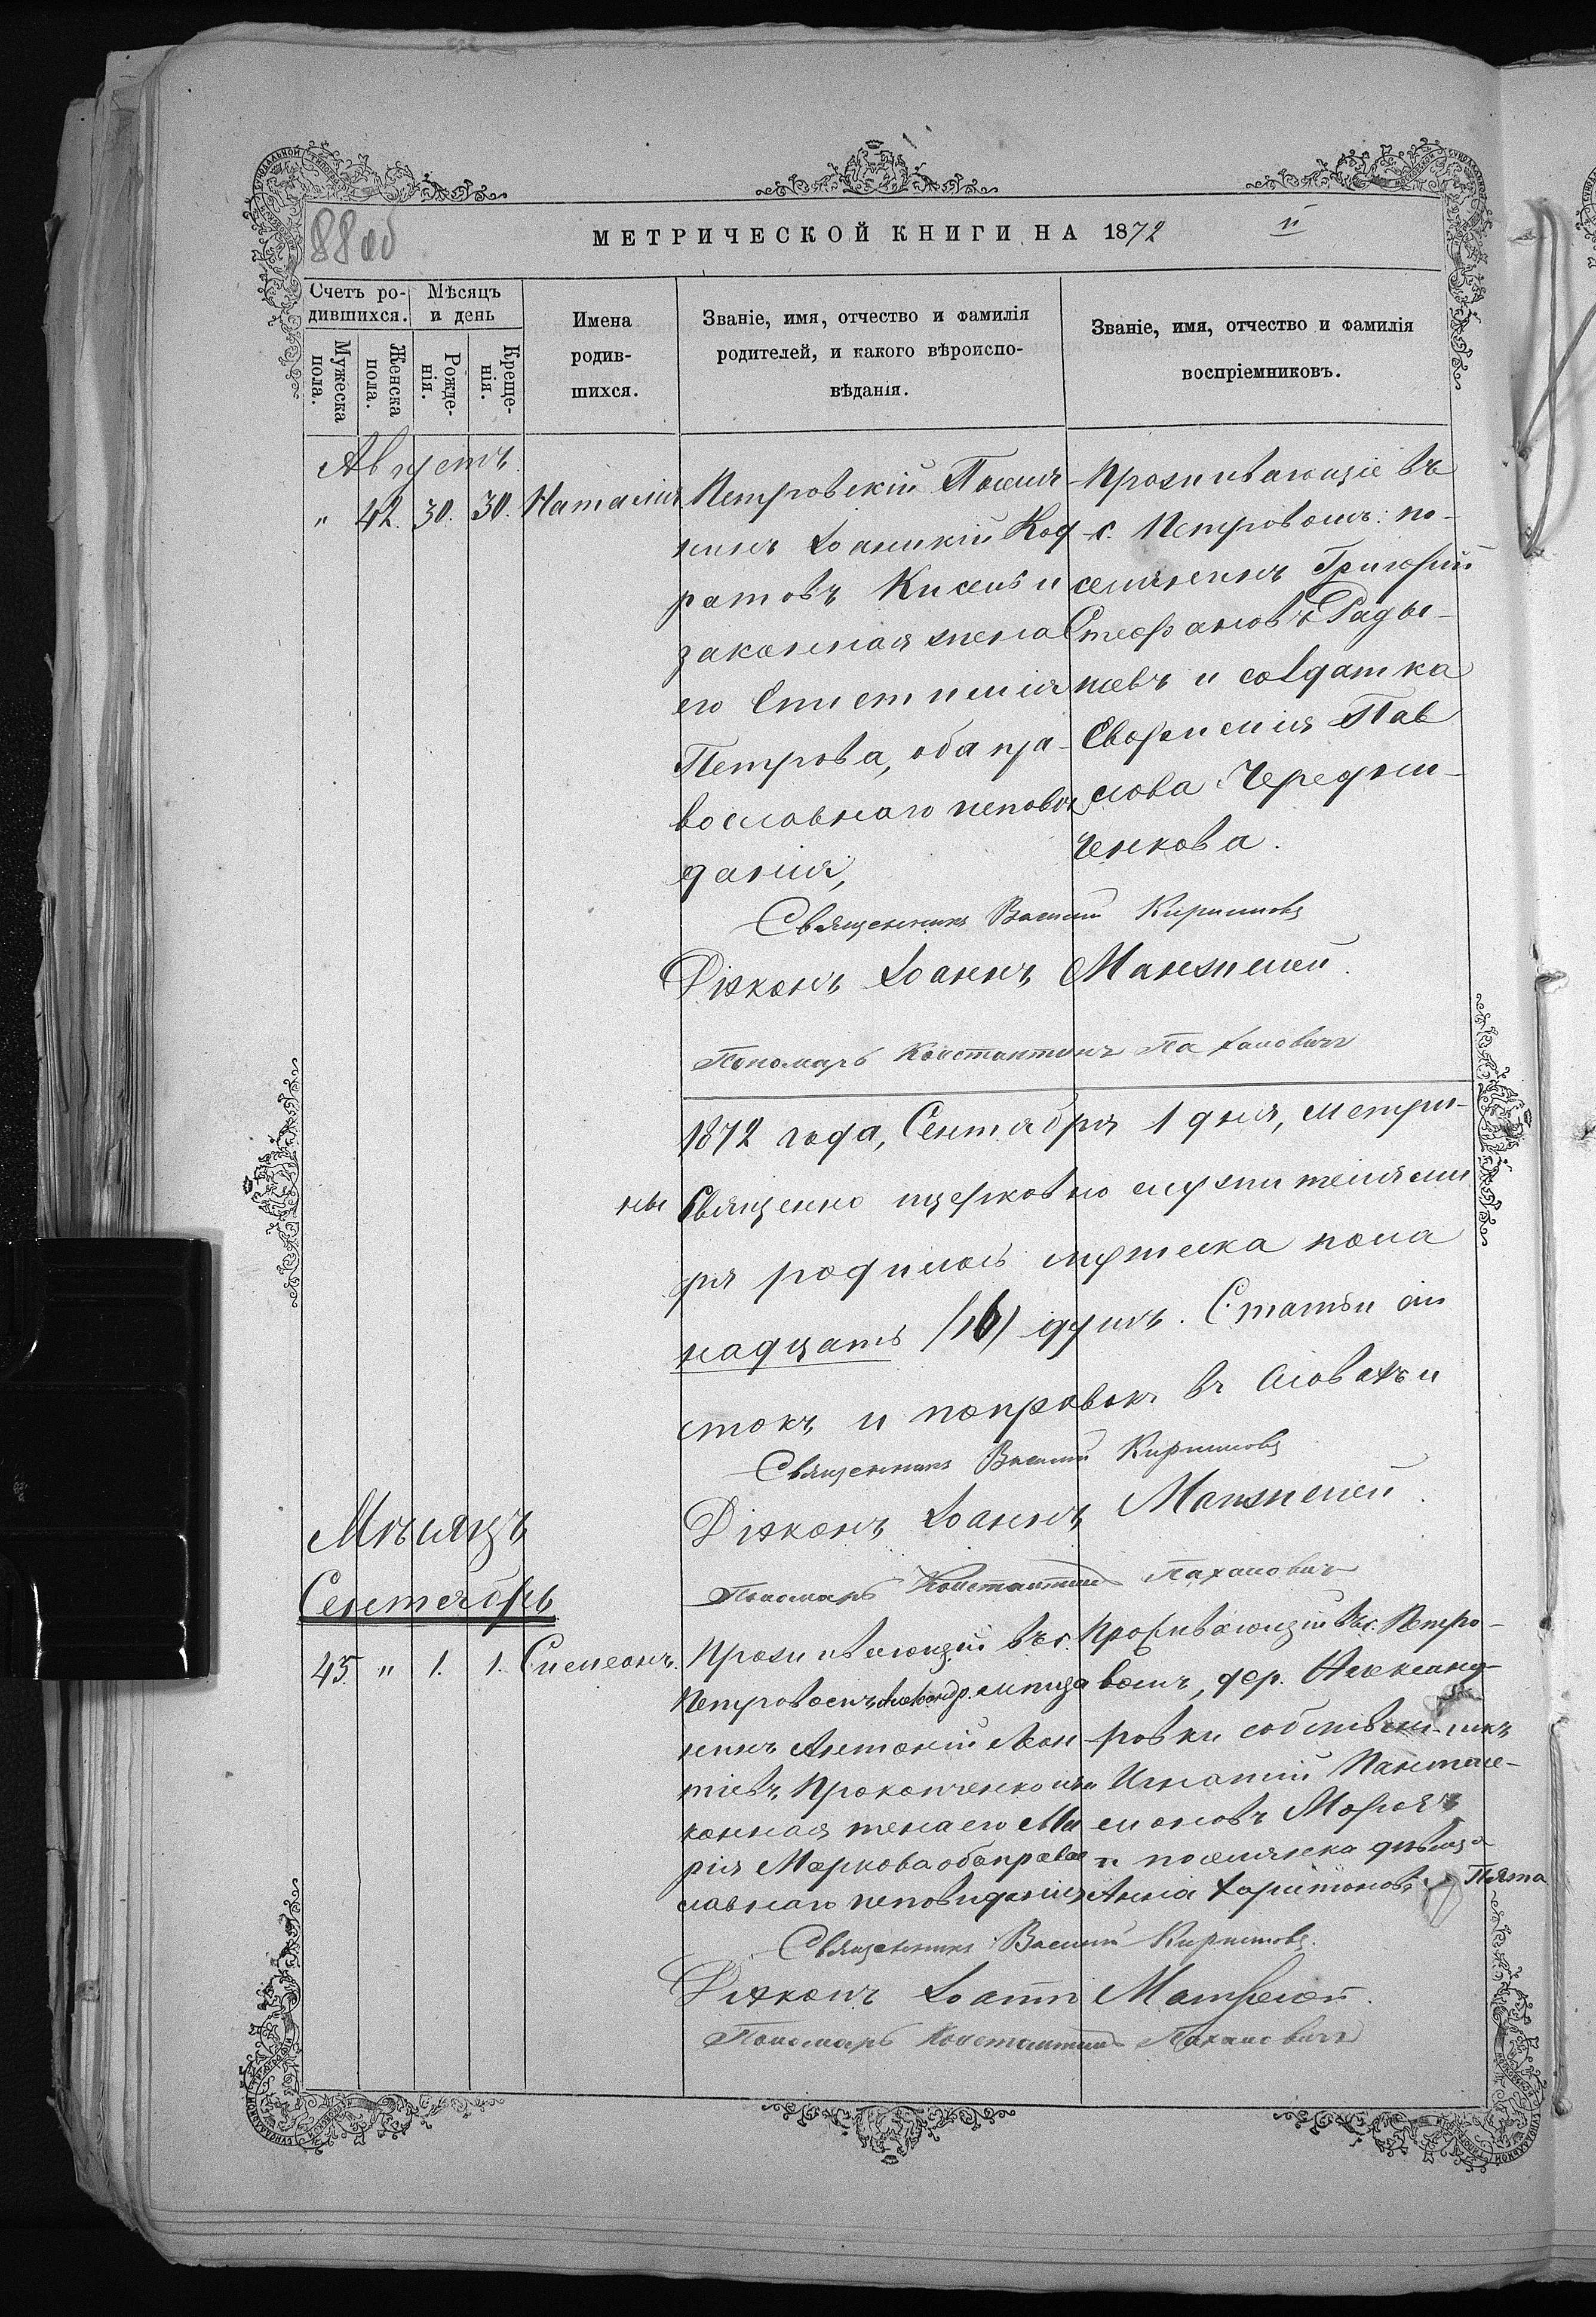 88 об
МЕТРИЧЕСКОЙ КНИГИ НА 1872
Счетъ ро-
дившихся.
Мужеска
пола.
Женска
пола.
Мѣсяцъ
и день
Рожде-
нія.
Креще-
нія.
Имена
родив-
шихся.
Званіе, имя, отчество и фамилія
родителей, и какого вѣроиспо-
вѣданія.
Званіе, имя, отчество и фамилія
воспріемниковъ.
Августъ
" 42. 30. 30. Наталія
Петровскій Посел-
нинъ Іоаникій Код-
ратовъ Кисель и
законная жена
его Епистимія
Петрова, оба пра-
вославнаго исповѣ
данія,
Проживающіе въ
с. Петровомъ: по-
селянинъ Григорій
Стефановъ Рады-
шевъ и солдатка
Евфимія Пав
лова Чередни-
ченкова.
Священникъ Василій Кирилловъ
Діаконъ Іоаннъ Манжелей.
Пономарь Константинъ Пахаловичъ
1872 года, Сентября 1 дня, метри-
ны Священно церковно служителями
ря родилось мужеска пола
надцать (16) душъ. Статьи
стокъ и поправокъ въ словахъ и
Священникъ Василій Кирилловъ
Діаконъ Іоаннъ Манжелей.
Пономарь Константинъ Пахаловичъ
Мѣсяцъ
Сентябрь
45. " 1. 1. Симеонъ.
Проживающій въ с.
Петровомъ Александр.
нинъ Антоній Леон
тіевъ Прокопченко и за
конная жена его Ма
рія Маркова оба право
славнаго исповѣданія
Проживающій въ с. Петро-
вомъ, дер. Александ-
ровки собственникъ
Игнатій Пантеле-
емоновъ
и поселянка дѣвица
Анна Харитонова
Священникъ Василій Кирилловъ.
Діаконъ Іоаннъ Манжелей.
Пономарь Константинъ Пахаловичъ